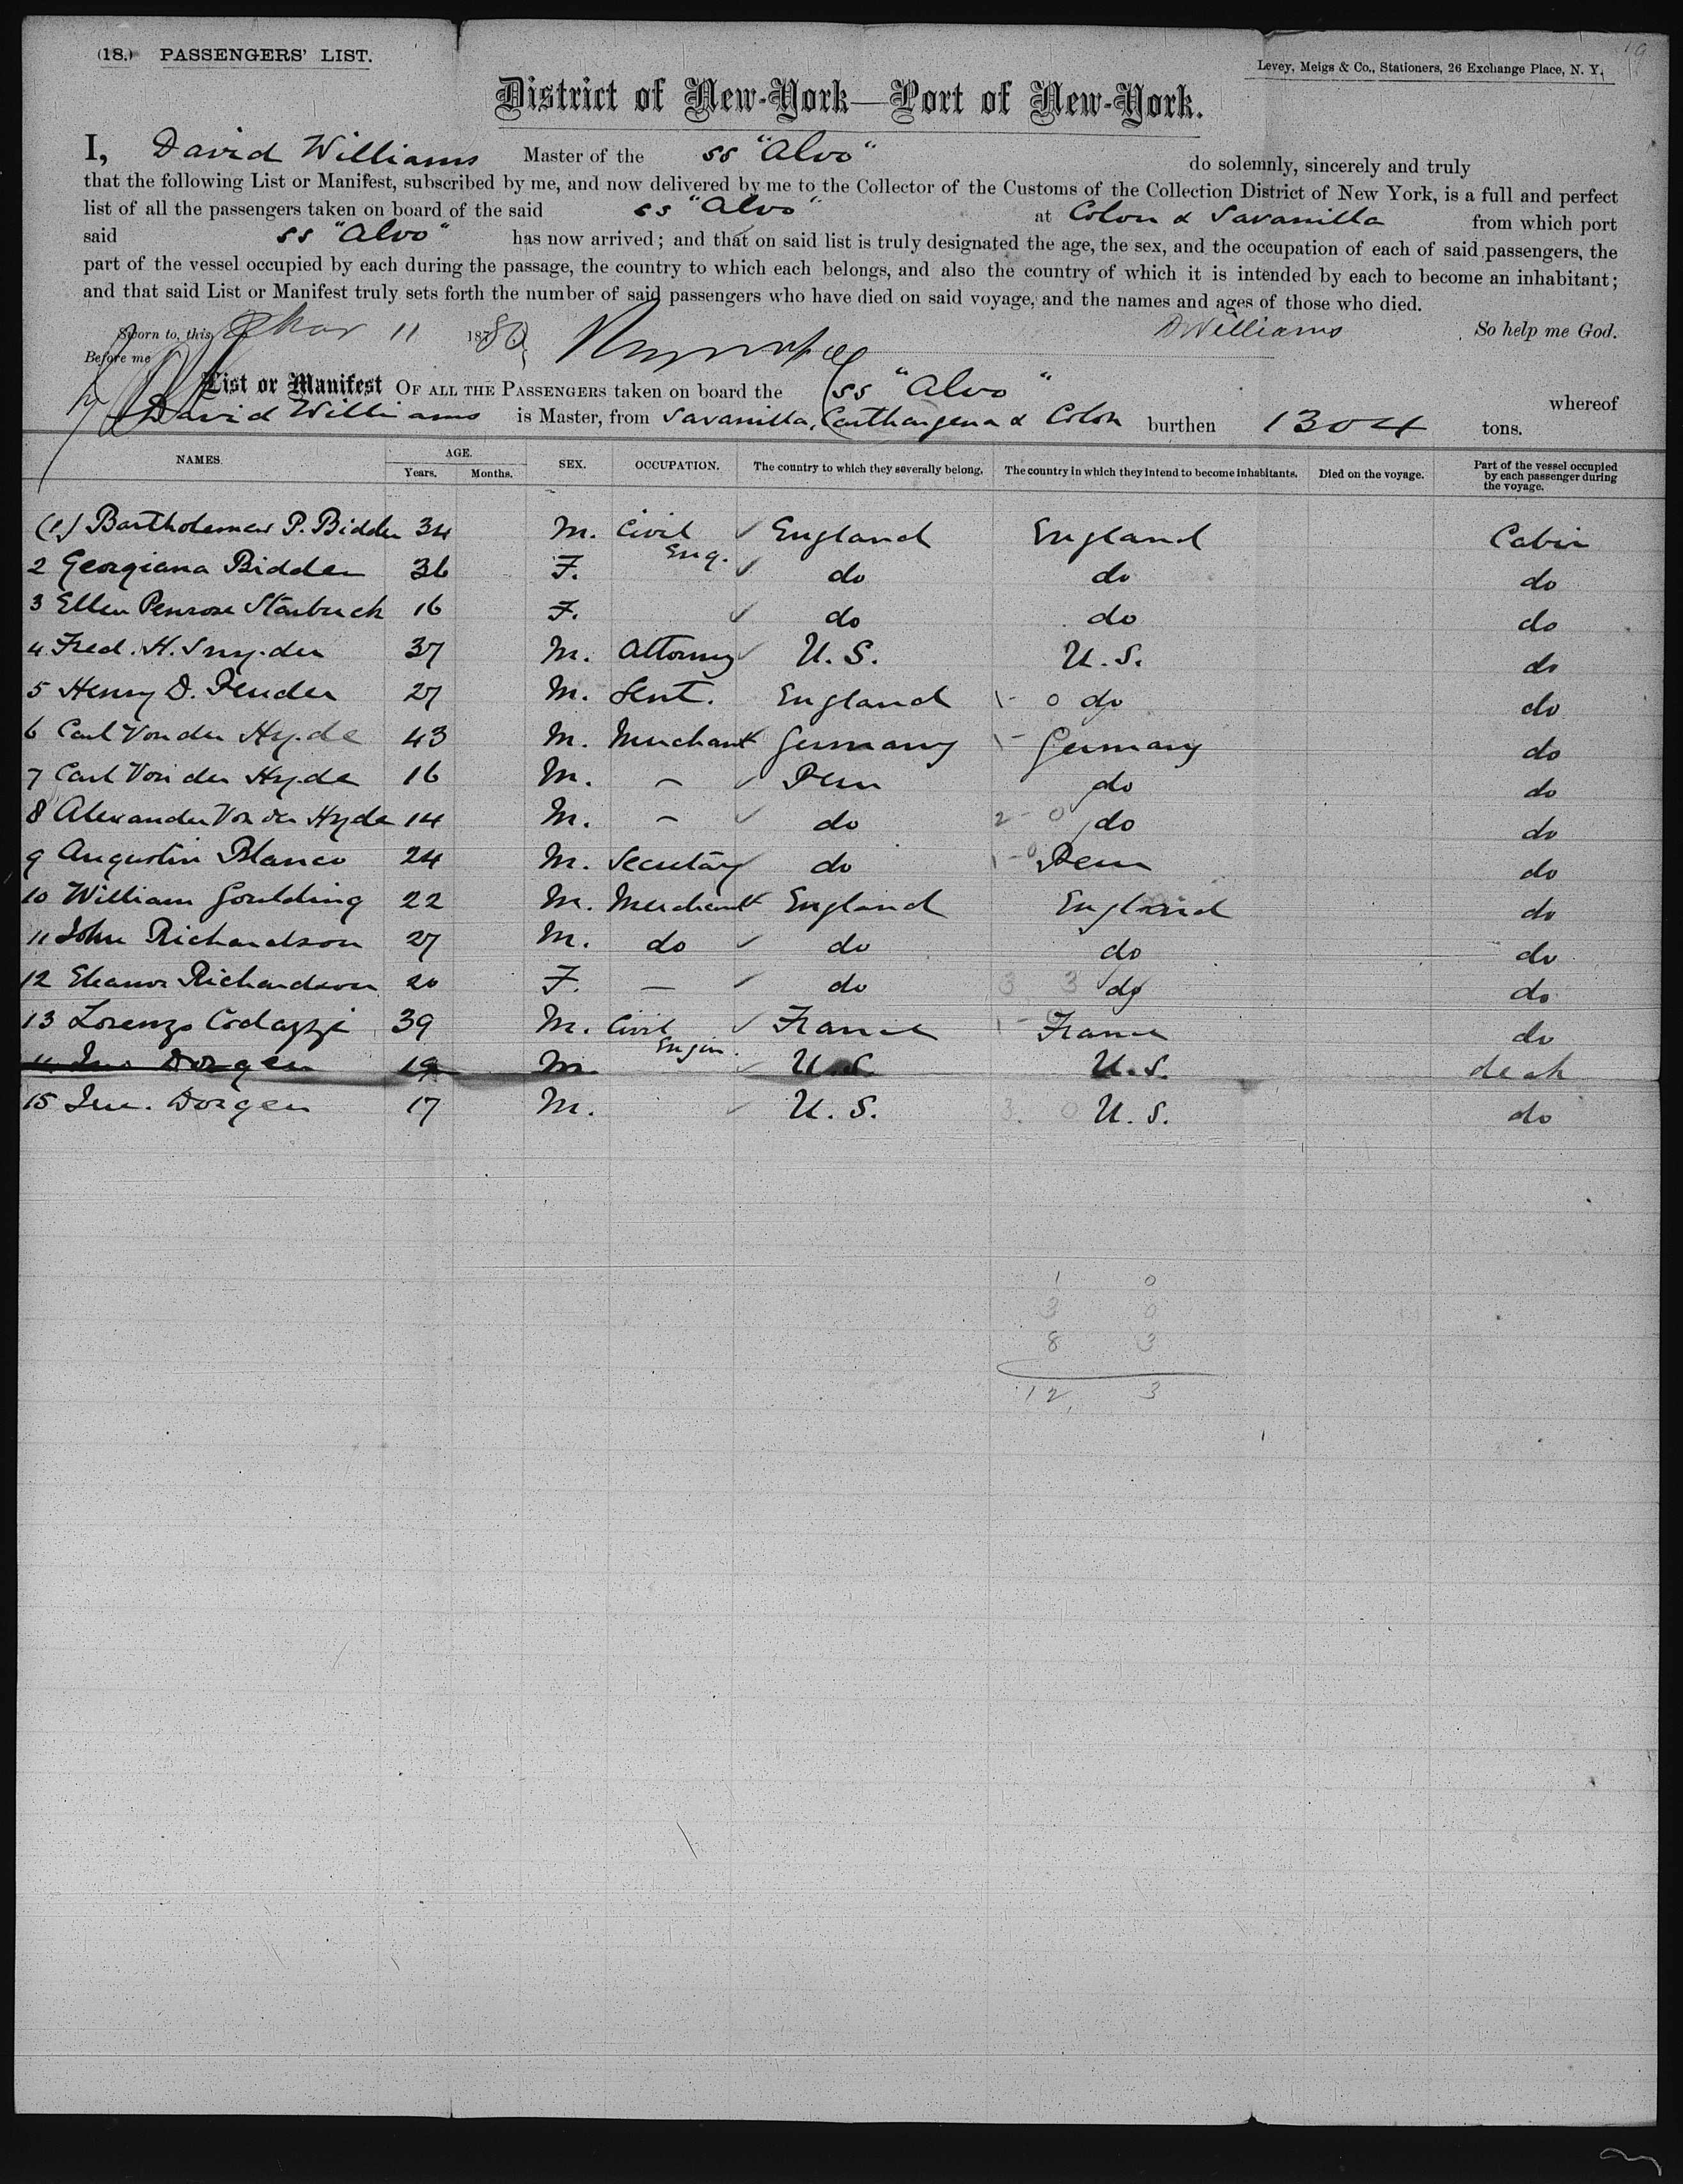 (18.) PASSENGERS' LIST.
Levey, Meigs & Co., Stationers, 26 Exchange Place, N. Y.
District of New-York—Port of New-York.
I, David Williams Master of the ss "Alvo" do solemnly, sincerely and truly
that the following List or Manifest, subscribed by me, and now delivered by me to the Collector of the Customs of the Collection District of New York, is a full and perfect
list of all the passengers taken on board of the said ss "Alvo" at Colon & Savanilla from which port
said ss "Alvo" has now arrived; and that on said list is truly designated the age, the sex, and the occupation of each of said passengers, the
part of the vessel occupied by each during the passage, the country to which each belongs, and also the country of which it is intended by each to become an inhabitant;
and that said List or Manifest truly sets forth the number of said passengers who have died on said voyage, and the names and ages of those who died.
Sworn to, this Mar 11 1880 D Williams So help me God.
Before me
List or Manifest OF ALL THE PASSENGERS taken on board the ss "Alvo" whereof
David Williams is Master, from Savanilla, Carthargena & Colon burthen 1304 tons.
NAMES. AGE. Years. Months. SEX. OCCUPATION. The country to which they severally belong. The country in which they intend to become inhabitants. Died on the voyage. Part of the vessel occupied by each passenger during the voyage.
(1.) Bartholemew P. Bidder 34 M. Civil Eng. England England Cabin
2 Georgiana Bidder 36 F. do do do
3 Ellen Penrose Starbuck 16 F. do do do
4 Fred. H. Snyder 37 M. Attorney U. S. U. S. do
5 Henry D. Pender 27 M. Gent. England 1 - 0 do do
6 Carl Von der Hyde 43 M. Merchant Germany 1 - Germany do
7 Carl Von der Hyde 16 M. – Peru do do
8 Alexander Von der Hyde 14 M. – do 2 - 0 do do
9 Augustin Blanco 24 M. Secretary do 1 - 0 Peru do
10 William Goulding 22 M. Merchant England England do
11 John Richardson 27 M. do do do do
12 Eleanor Richardson 20 F. — do 3 3 do do
13 Lorenzo Codazzi 39 M. Civil Engin. France 1 - France do
Dorgen 19 M U.S. U.S. deck
15 Dorgen 17 M. U. S. 3. 0 U. S. do
1 0
3 0
8 3
12 3